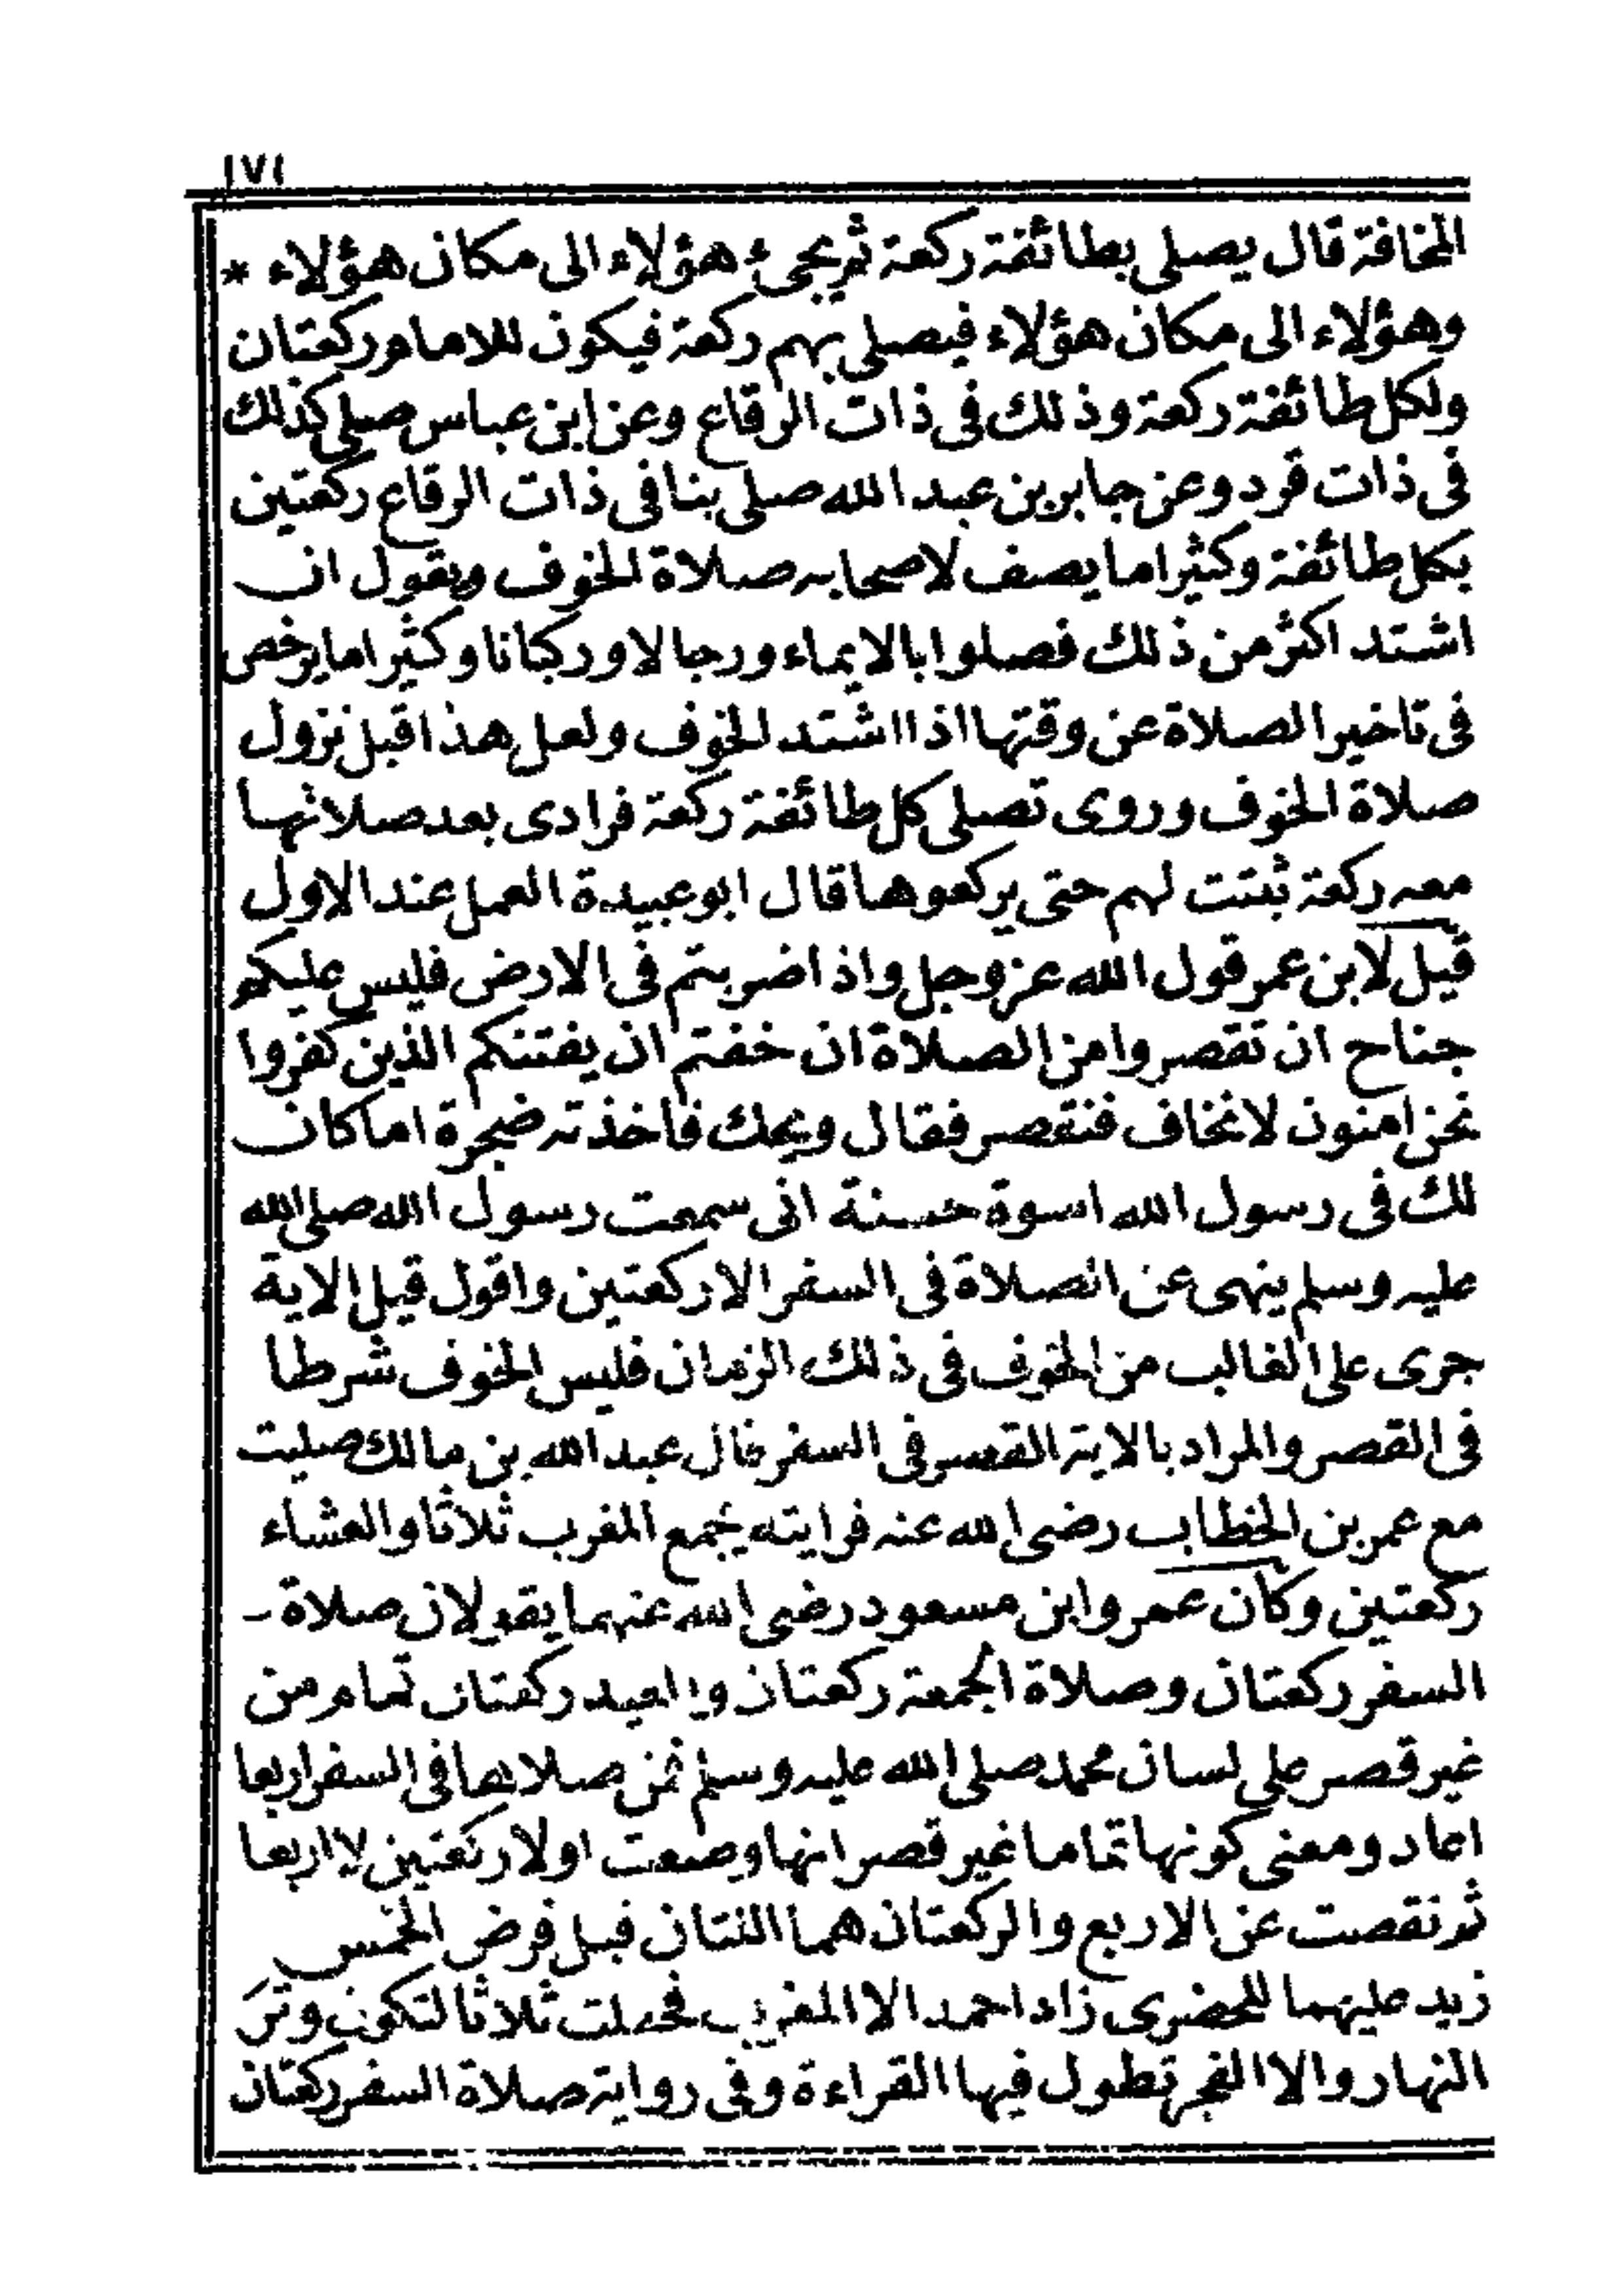 ١٧١
المخافة قال يصلى بطائفة ركعة ثم يجىء هؤلاء الى مكان هؤلاء *
وهؤلاء الى مكان هؤلاء فيصلى بهم ركعة فيكون للامام ركعتان
ولكل طائفة ركعة وذلك فى ذات الرقاع وعن ابن عباس صلى كذلك
فى ذات قرد وعن جابر بن عبد الله صلى بنا فى ذات الرقاع ركعتين
بكل طائفة وكثيرا ما يصف لاصحابه صلاة الخوف ويقول ان
اشتد اكثر من ذلك فصلوا بالايماء ورجالا وركبانا وكثيرا ما يرخص
فى تاخير الصلاة عن وقتها اذا اشتد الخوف ولعل هذا قبل نزول
صلاة الخوف وروى تصلى كل طائفة ركعة فرادى بعد صلاتها
معه ركعة ثبتت لهم حتى يركعوها قال ابو عبيدة العمل عند الاول
قيل لابن عمر قول الله عز وجل واذا ضربتم فى الارض فليس عليكم
جناح ان تقصروا من الصلاة ان خفتم ان يفتنكم الذين كفروا
نحن امنون لا نخاف فنقصر فقال ويحك فاخذته ضجرة اما كان
لك فى رسول الله اسوة حسنة انى سمعت رسول الله صلى الله
عليه وسلم ينهى عن الصلاة فى السفر الا ركعتين واقول قيل الاية
جرى على الغالب من الخوف فى ذلك الزمان فليس الخوف شرطا
فى القصر والمراد بالاية القصر فى السفر قال عبد الله بن مالك صليت
مع عمر بن الخطاب رضى الله عنه فرايته يجمع المغرب ثلاثا والعشاء
ركعتين وكان عمر وابن مسعود رضى الله عنهما يقولان صلاة -
السفر ركعتان وصلاة الجمعة ركعتان والعيد ركعتان تمام من
غير قصر على لسان محمد صلى الله عليه وسلم فمن صلاها فى السفر اربعا
اعاد ومعنى كونها تماما غير قصر انها وضعت اولا ركعتين لا اربعا
ثم نقصت عن الاربع والركعتان هما اللتان قبل فرض الخمس
زيد عليهما للحضرى زاد احمد الا المغرب فجعلت ثلاثا لتكون وتر
النهار والا الفجر تطول فيها القراءة وفى رواية صلاة السفر ركعتان